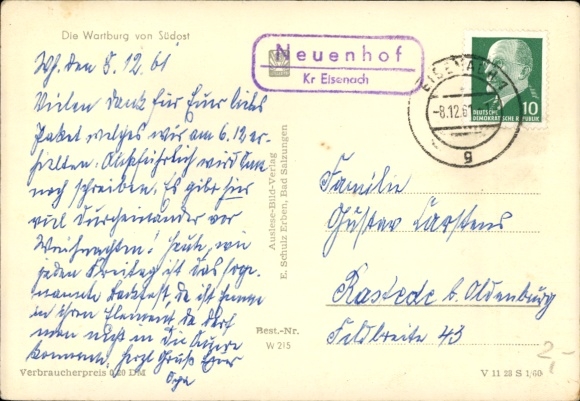 Die Wartburg von Südost
Neuenhof
Kr Eisenach
EISENACH
-8.12.61
g
10
DEUTSCHE
DEMOKRATISCHE REPUBLIK
Whf. den 8.12.61
Vielen Dank für Euer liebes
Paket welches wir am 6.12 er-
hielten. Ausführlich wird
noch schreiben. Es gibt hier
viel Durcheinander vor
Weihnachten! Heute, wie
jeden Freitag ist das soge-
nannte Backfest, da ist
in ihrem Element da darf
man nicht in die Quere
kommen. Herzl Grüße Euer
Opa
Auslese-Bild-Verlag
E. Schulz Erben, Bad Salzungen
Best.-Nr.
W 215
Familie
Gustav Carstens
Rastede b. Oldenburg
Feldbreite 43
2,-
Verbraucherpreis 0,20 DM
V 11 28 S 1/60